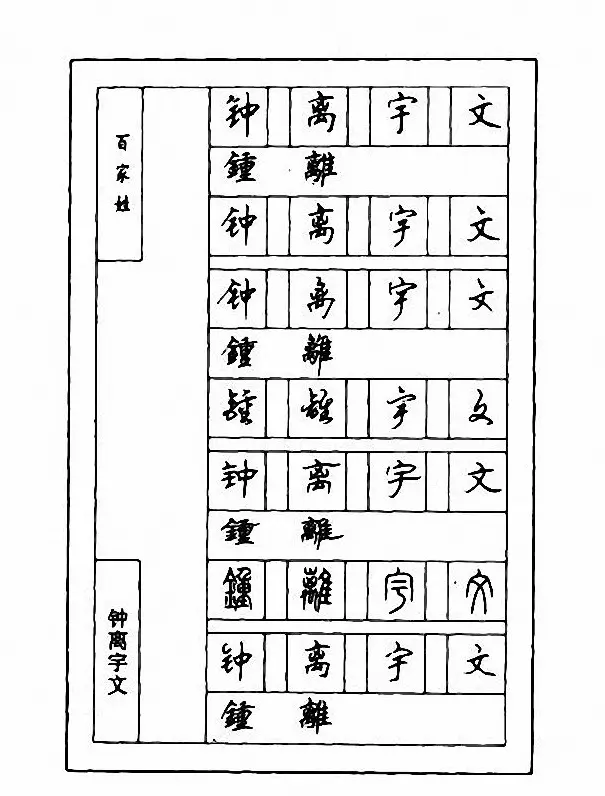 百家姓
钟离宇文
钟 离 宇 文
鍾 離
钟 离 宇 文
钟 离 宇 文
鍾 離
鍾 離 宇 文
钟 离 宇 文
鍾 離
鍾 離 宇 文
钟 离 宇 文
鍾 離